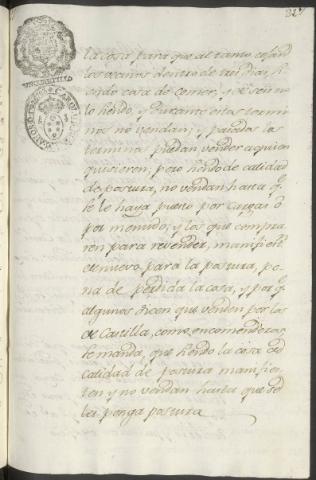 327
la cosa para que al tanto
los vecinos dentro de tres dias, si
endo cosa de comer, y
lo siendo, y durante estos termi
nos no vendan; y pasados los
terminos puedan vender a quien
quisieren; pero siendo de calidad
de postura, no vendan hasta q.
se le haya puesto por cargas ó
por menudo, y los que compra
ren para revender, manifies
de nuevo para la postura, pe
na de perdida la cosa, y por q.
algunos dicen que venden por los
de Castilla, como encomenderos,
se manda, que siendo la cosa de
calidad de postura manifies
ten y no vendan hasta que se
les ponga postura